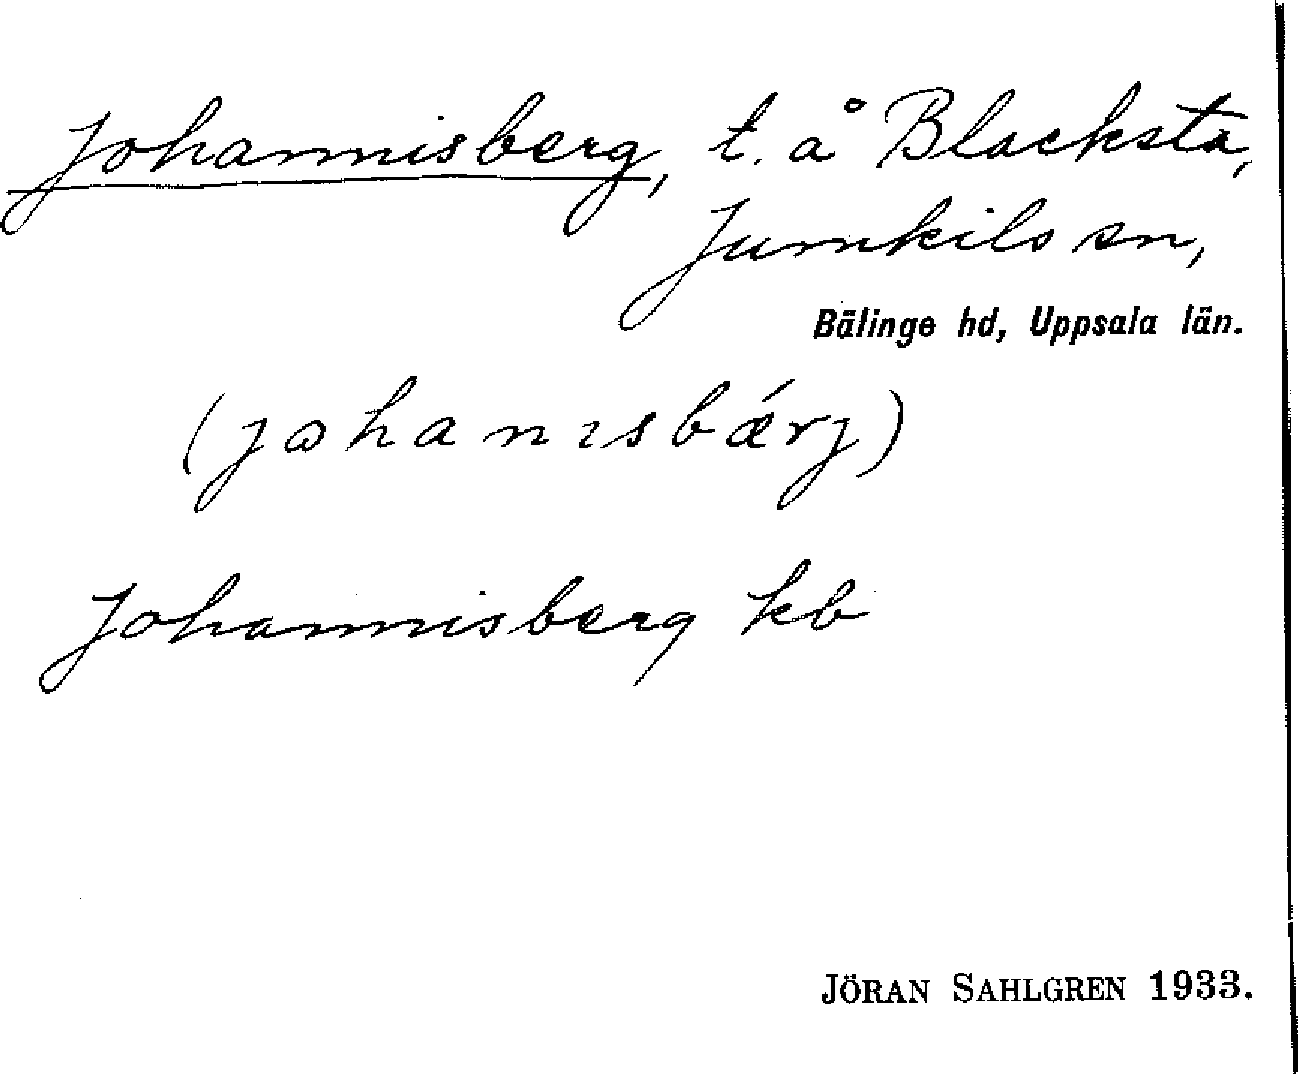 Johannisberg, t. å Blacksta,
Jumkils sn,
Bälinge hd, Uppsala län.
(jωhanɩsbǽrj)
Johannisberg kb
JÖRAN SAHLGREN 1933.